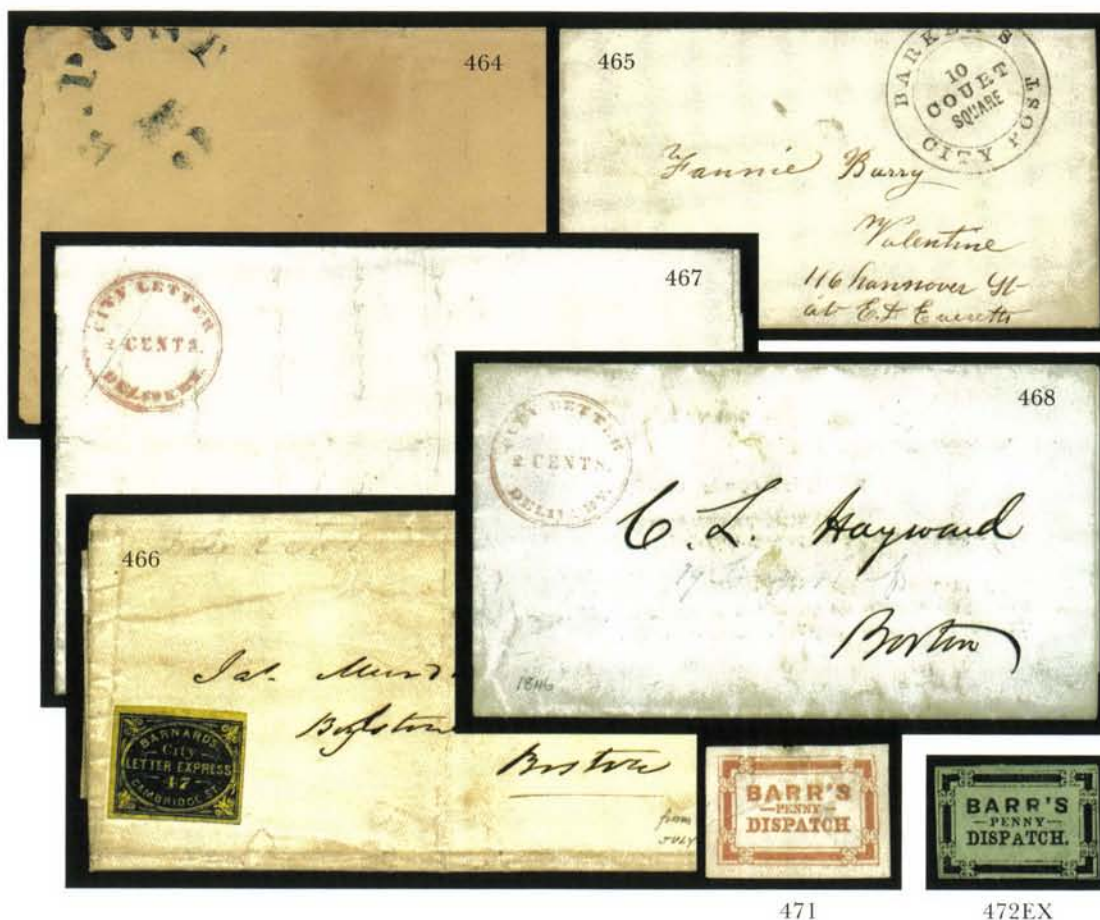 464
465
BARKER'S
CITY POST
10
COURT
SQUARE
Fannie Barry
Valentine
116 hannover St
at E.D Everetts
467
CITY LETTER
2 CENTS.
DELIVERY.
468
CITY LETTER
2 CENTS.
DELIVERY.
C. L. Hayward
Boston
1846
466
Jas. Mund
Boylston
Boston
from
JULY
BARNARD'S
City
LETTER EXPRESS
47
CAMBRIDGE ST.
BARR'S
PENNY
DISPATCH
BARR'S
PENNY
DISPATCH.
471
472EX